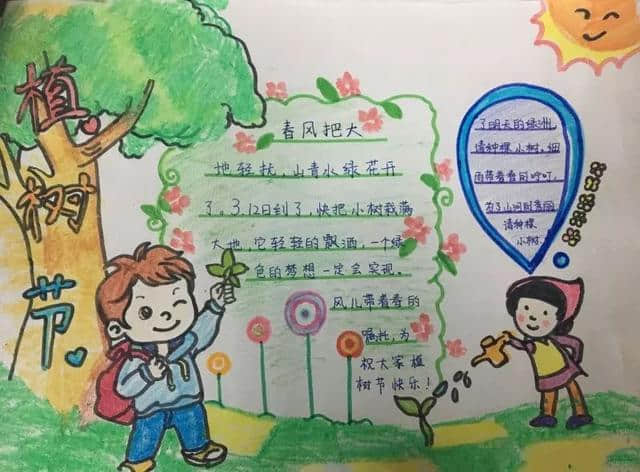 植树节
春风把大
地轻抚,山青水绿花开
了。3.12日到了,快把小树栽满
大地,它轻轻的飘洒,一个绿
色的梦想一定会实现。
风儿带着春的
嘱托,为
祝大家植
树节快乐!
了明天的绿洲,
请种棵小树。细
雨带着春的呼叮,
为了小鸟的家园
请种棵
小树.